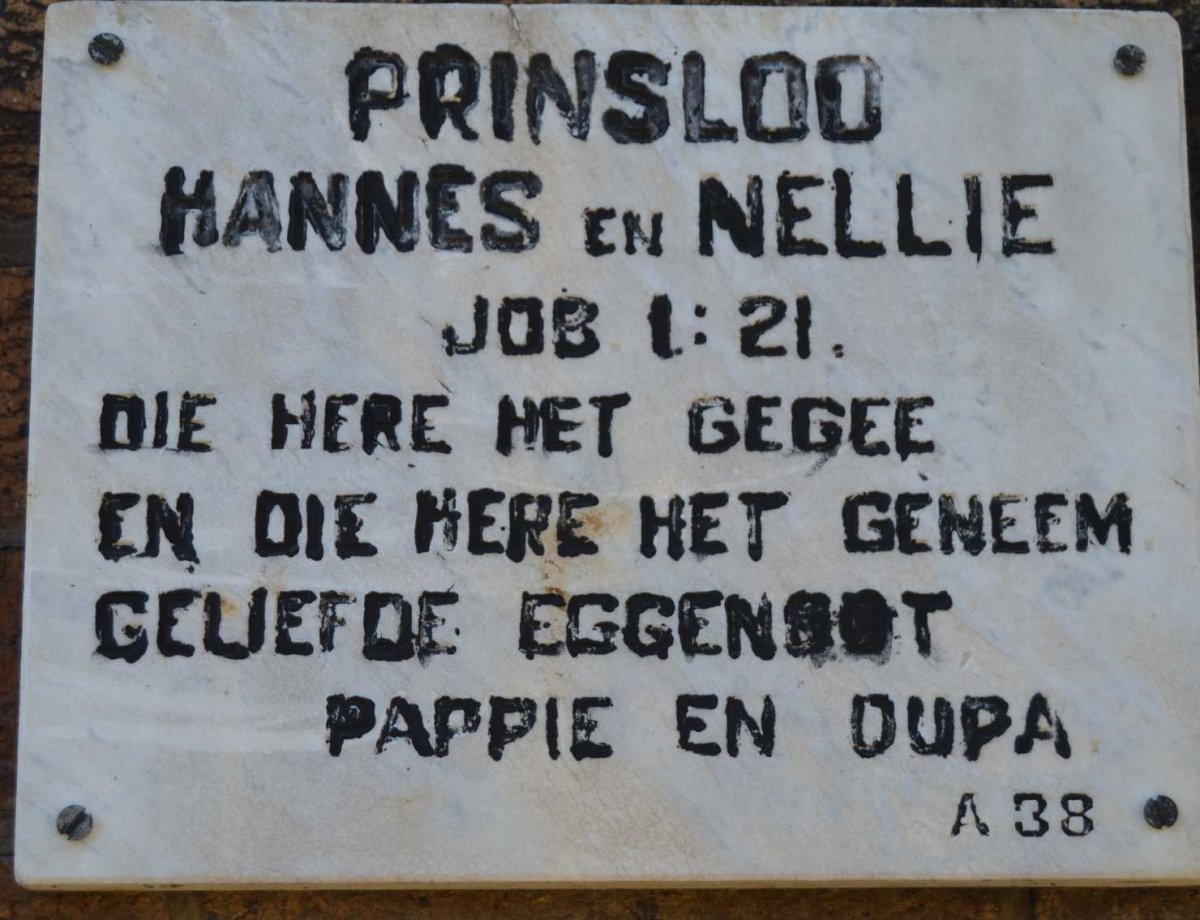 PRINSLOO
HANNES EN NELLIE
JOB 1:21.
DIE HERE HET GEGEE
EN DIE HERE HET GENEEM
GELIEFDE EGGENOOT
PAPPIE EN OUPA
A 38